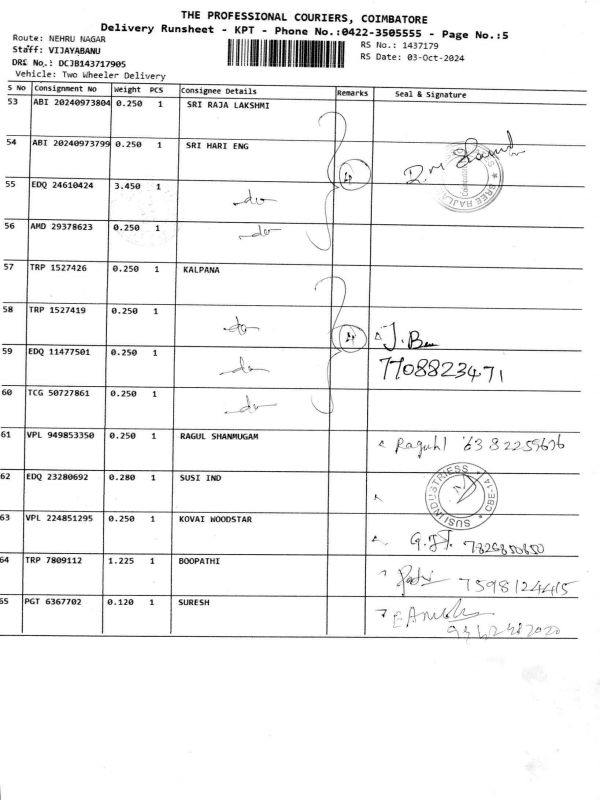 THE PROFESSIONAL COURIERS, COIMBATORE
Delivery Runsheet - KPT - Phone No.:0422-3505555 - Page No.:5
Route: NEHRU NAGAR
RS No.: 1437179
Staff: VIJAYABANU
RS Date: 03-Oct-2024
DRS No.: DCJB143717905
Vehicle: Two Wheeler Delivery
S No Consignment No Weight PCS Consignee Details Remarks Seal & Signature
53 ABI 20240973804 0.250 1 SRI RAJA LAKSHMI
54 ABI 20240973799 0.250 1 SRI HARI ENG
55 EDQ 24610424 3.450 1 -do-
56 AMD 29378623 0.250 1 -do-
57 TRP 1527426 0.250 1 KALPANA
58 TRP 1527419 0.250 1 -do-
59 EDQ 11477501 0.250 1 -do- 7708823471
60 TCG 50727861 0.250 1 -do-
61 VPL 949853350 0.250 1 RAGUL SHANMUGAM Raguhl
62 EDQ 23280692 0.280 1 SUSI IND SUSI INDUSTRIESS CBE-14
63 VPL 224851295 0.250 1 KOVAI WOODSTAR
64 TRP 7809112 1.225 1 BOOPATHI 7598124415
65 PGT 6367702 0.120 1 SURESH